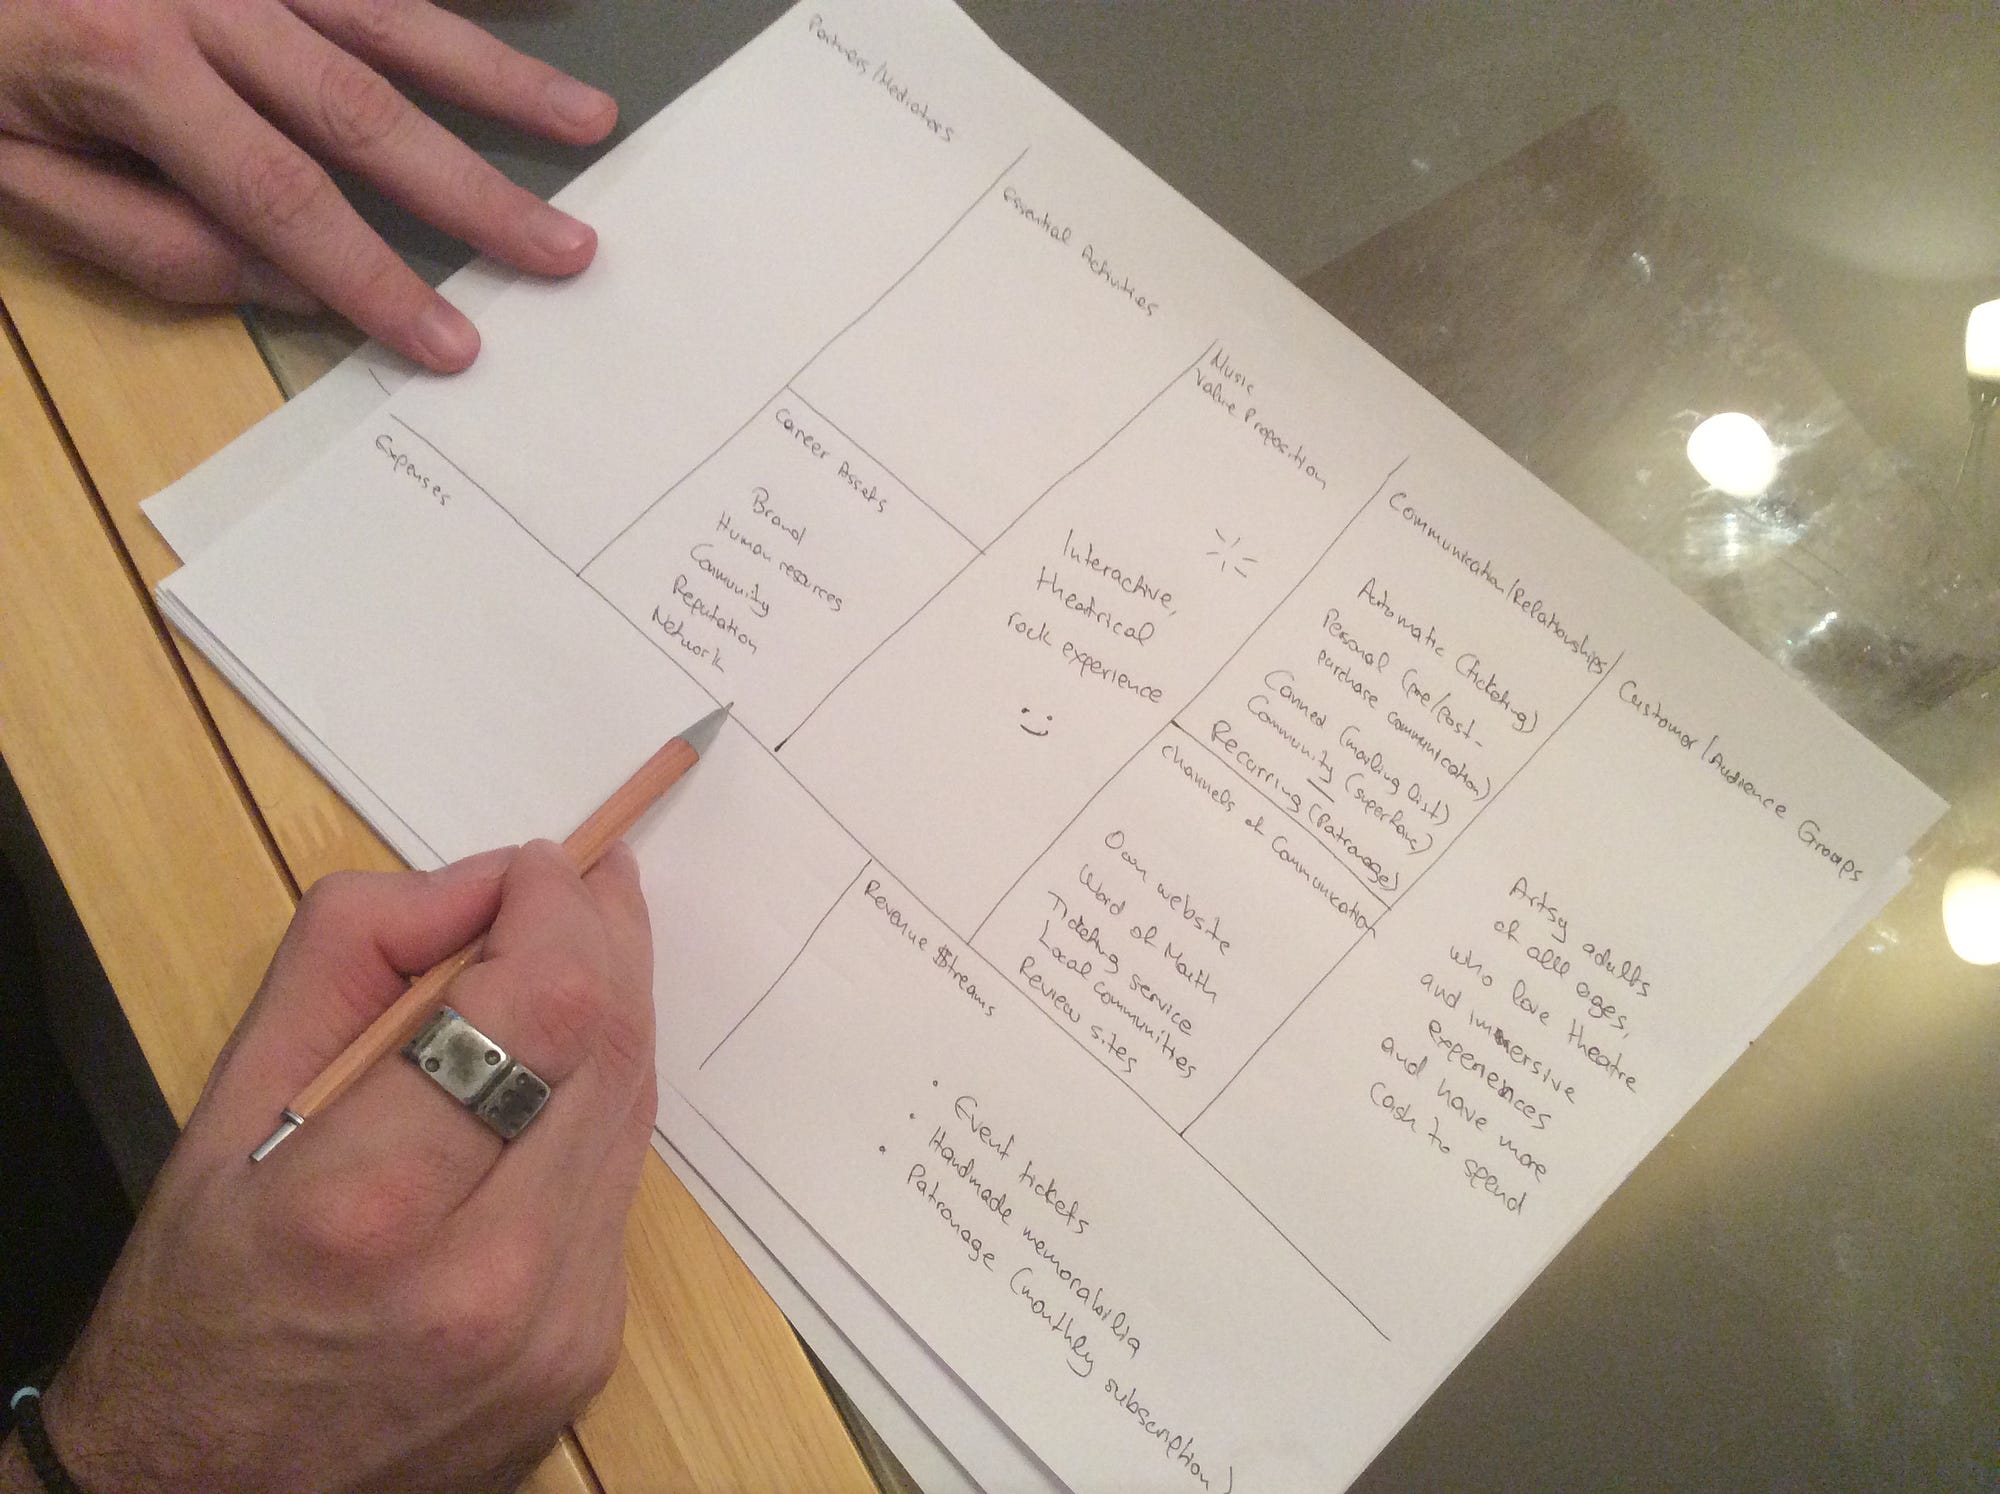 Partners/Mediators
Essential Activities
Career Assets
Brand
Human resources
Community
Reputation
Network
Music
Value Proposition
Interactive,
theatrical
rock experience
Communication/Relationships
Automatic (ticketing)
Personal (pre/post-
purchase communication)
Canned (mailing list)
Community (superfans)
Recurring (Patronage)
Channels of Communication
Own website
Word of Mouth
Ticketing service
Local communities
Review sites
Customer/Audience Groups
Artsy adults
of all ages,
who love theatre
and immersive
experiences
and have more
cash to spend
Expenses
Revenue $treams
• Event tickets
• Handmade memorabilia
• Patronage (monthly subscription)